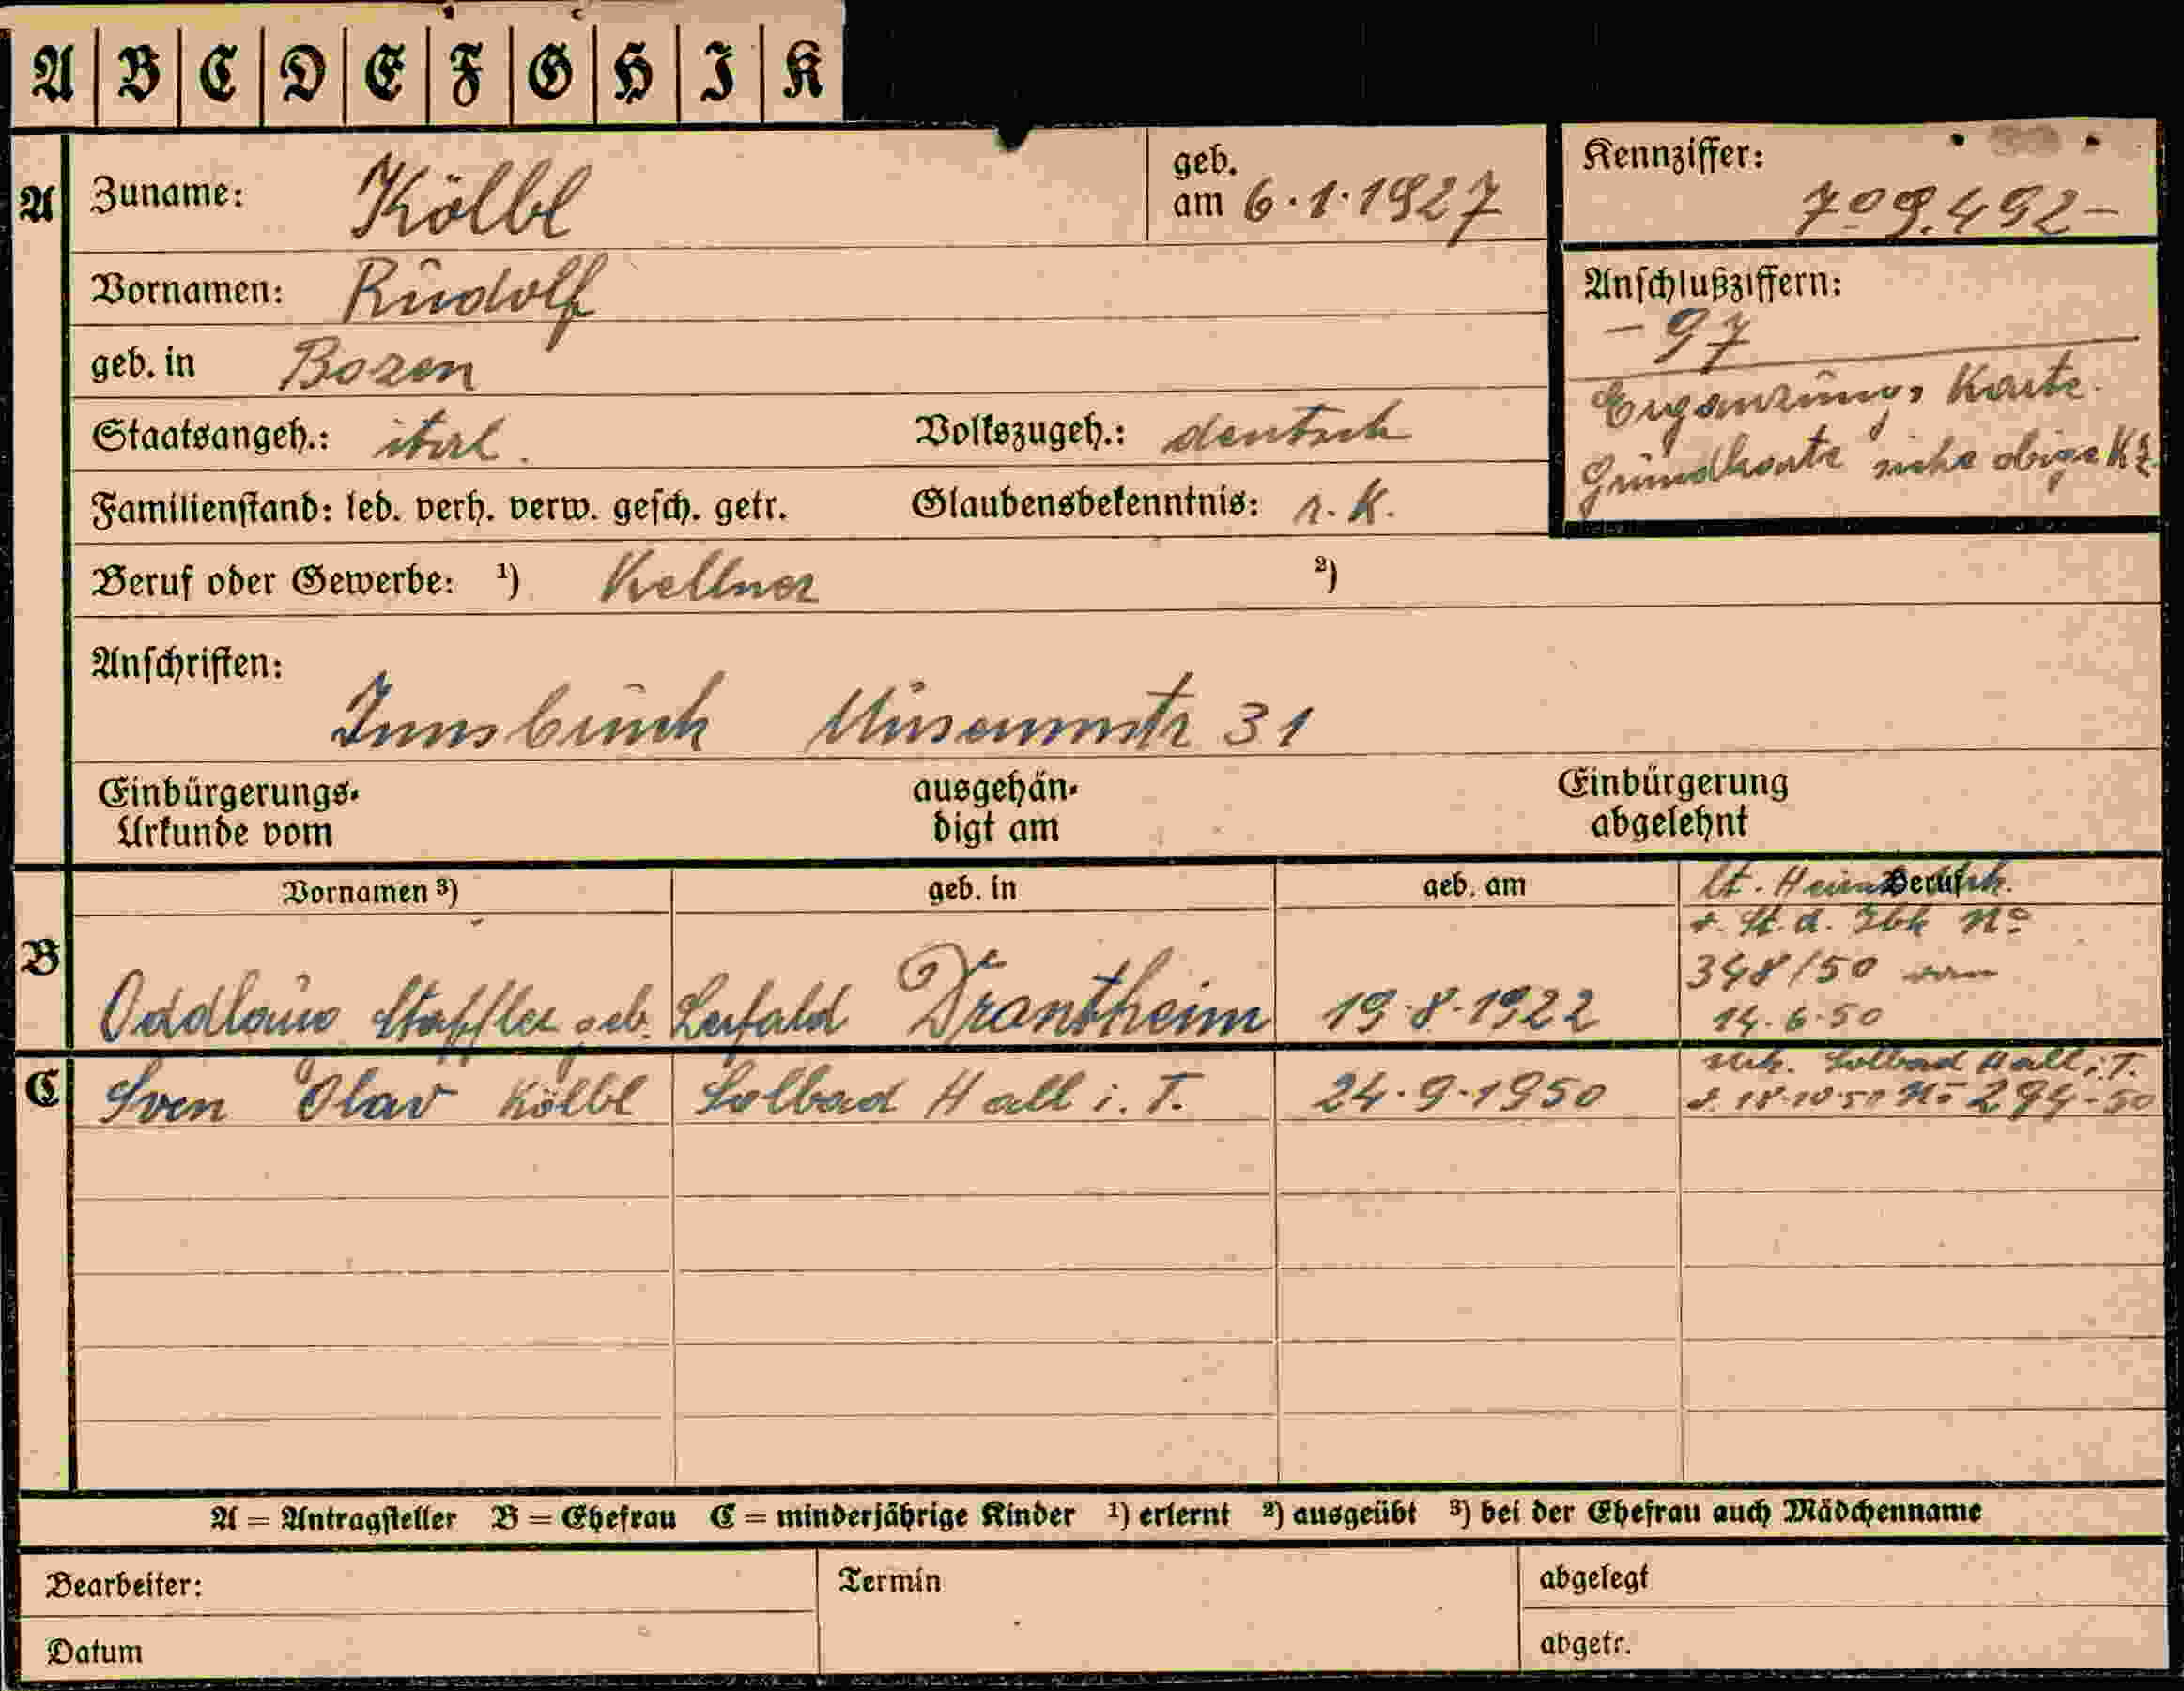 A B C D E F G H I K
A
Zuname: Kölbl
geb. am 6.1.1927
Kennziffer: 709.492-
Vornamen: Rudolf
Anschlußziffern: -97
geb. in Bozen
Ergänzungs Karte.
Staatsangeh.: ital. Volkszugeh.: deutsch
Grundkarte siehe obige KZ
Familienstand: led. verh. verw. gesch. getr. Glaubensbekenntnis: r. K.
Beruf oder Gewerbe: ¹) Kellner ²)
Anschriften:
Innsbruck Museumstr 31
Einbürgerungs-Urkunde vom ausgehändigt am Einbürgerung abgelehnt
Vornamen ³) geb. in geb. am Beruf
lt.
d. St. d. Ibk No
348/50 vom
14.6.50
B Staffler geb. Drontheim 19.8.1922
C Sven Olav Kölbl Solbad Hall i. T. 24.9.1950
Solbad Hall i. T.
No 294-50
A = Antragsteller B = Ehefrau C = minderjährige Kinder ¹) erlernt ²) ausgeübt ³) bei der Ehefrau auch Mädchenname
Bearbeiter: Termin abgelegt
Datum abgetr.